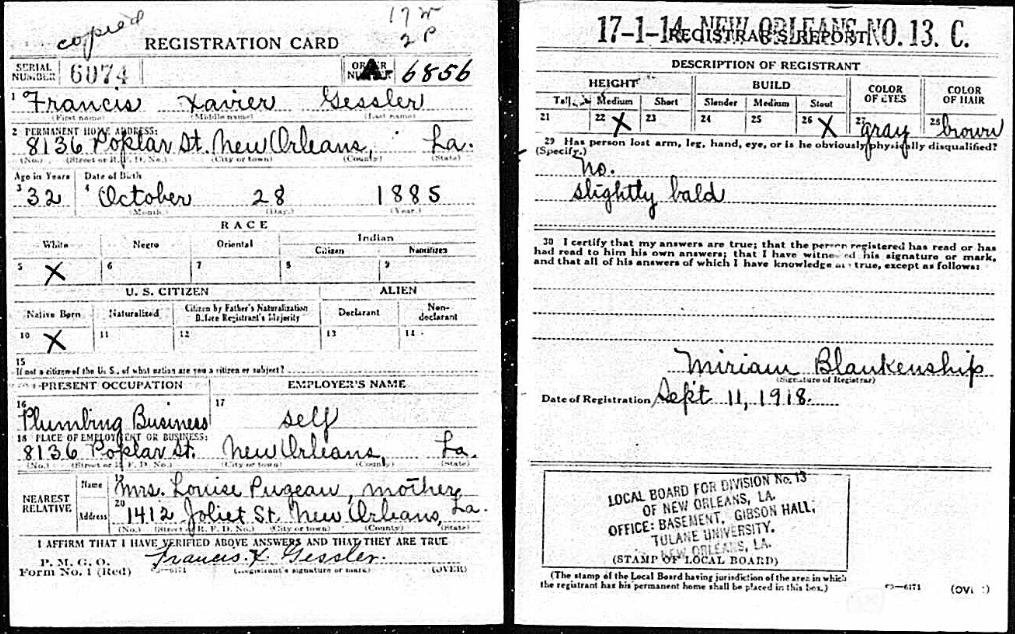 copied
172
2P
REGISTRATION CARD
SERIAL NUMBER 6074
ORDER NUMBER A 6856
1 Francis Xavier Gessler
(First name) (Middle name) (Last name)
2 PERMANENT HOME ADDRESS:
8136 Poplar St. New Orleans, La.
(No.) (Street or R. F. D. No.) (City or town) (County) (State)
Age in Years Date of Birth
3 32 4 October 28 1885
(Month.) (Day.) (Year.)
RACE
White Negro Oriental Indian
Citizen Noncitizen
5 X 6 7 8 9
U. S. CITIZEN ALIEN
Native Born Naturalized Citizen by Father's Naturalization Before Registrant's Majority Declarant Non-declarant
10 X 11 12 13 14
15
If not a citizen of the U. S., of what nation are you a citizen or subject?
PRESENT OCCUPATION EMPLOYER'S NAME
16 Plumbing Business 17 self
18 PLACE OF EMPLOYMENT OR BUSINESS:
8136 Poplar St. New Orleans, La.
(No.) (Street or R. F. D. No.) (City or town) (County) (State)
NEAREST RELATIVE
Name Mrs. Louise Pugeau, mother
20
Address 1412 Joliet St. New Orleans, La.
(No.) (Street or R. F. D. No.) (City or town) (County) (State)
I AFFIRM THAT I HAVE VERIFIED ABOVE ANSWERS AND THAT THEY ARE TRUE
P. M. G. O.
Form No. 1 (Red) Francis. X. Gessler.
(Registrant's signature or mark) (OVER)
17-1-14 NEW ORLEANS NO. 13. C.
REGISTRAR'S REPORT
DESCRIPTION OF REGISTRANT
HEIGHT BUILD COLOR OF EYES COLOR OF HAIR
Tall Medium Short Slender Medium Stout
21 22 X 23 24 25 26 X 27 gray 28 brown
29 Has person lost arm, leg, hand, eye, or is he obviously physically disqualified?
(Specify.)
no.
slightly bald
30 I certify that my answers are true; that the person registered has read or has
had read to him his own answers; that I have witnessed his signature or mark,
and that all of his answers of which I have knowledge are true, except as follows:
Miriam Blankenship
(Signature of Registrar)
Date of Registration Sept 11, 1918.
LOCAL BOARD FOR DIVISION No. 13
OF NEW ORLEANS, LA.
OFFICE: BASEMENT, GIBSON HALL,
TULANE UNIVERSITY.
NEW ORLEANS, LA.
(STAMP OF LOCAL BOARD)
(The stamp of the Local Board having jurisdiction of the area in which
the registrant has his permanent home shall be placed in this box.)
03—6171 (OVER)